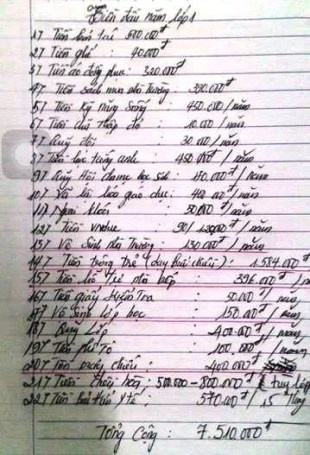 Tiền đầu năm lớp 1
1/ Tiền bán trú 500.000đ
2/ Tiền ghế : 40.000đ
3/ Tiền áo đồng phục : 320.000đ
4/ Tiền sách mua nhà trường : 350.000đ
5/ Tiền kỹ năng sống : 450.000 / năm
6/ Tiền chữ thập đỏ : 10.000 / năm
7/ Quỹ đội : 30.000 / năm
8/ Tiền học tiếng anh : 450.000đ / năm
9/ Quỹ Hội cha mẹ học sinh :
10/ Xã hội hóa giáo dục :
11/ : 50.000 / năm
12/ Tiền vnedu : / năm
13/ Vệ Sinh nhà Trường : 130.000đ / năm
14/ Tiền trông trẻ (dạy buổi chiều) : 1.584.000đ
15/ Tiền nhà bếp : 396.000đ /
16/ Tiền giấy kiểm Tra 50.000đ / năm
17/ Vệ Sinh lớp học 150.000đ / năm
18/ Quỹ Lớp : 400.000đ /
19/ Tiền : 100.000 /
20/ Tiền chiều : 400.000đ
21/ Tiền : 500.000 - 800.000đ / Tùy lớp
22/ Tiền bảo hiểm Y tế : 570.000đ / 15 Tháng
Tổng Cộng : 7.510.000đ